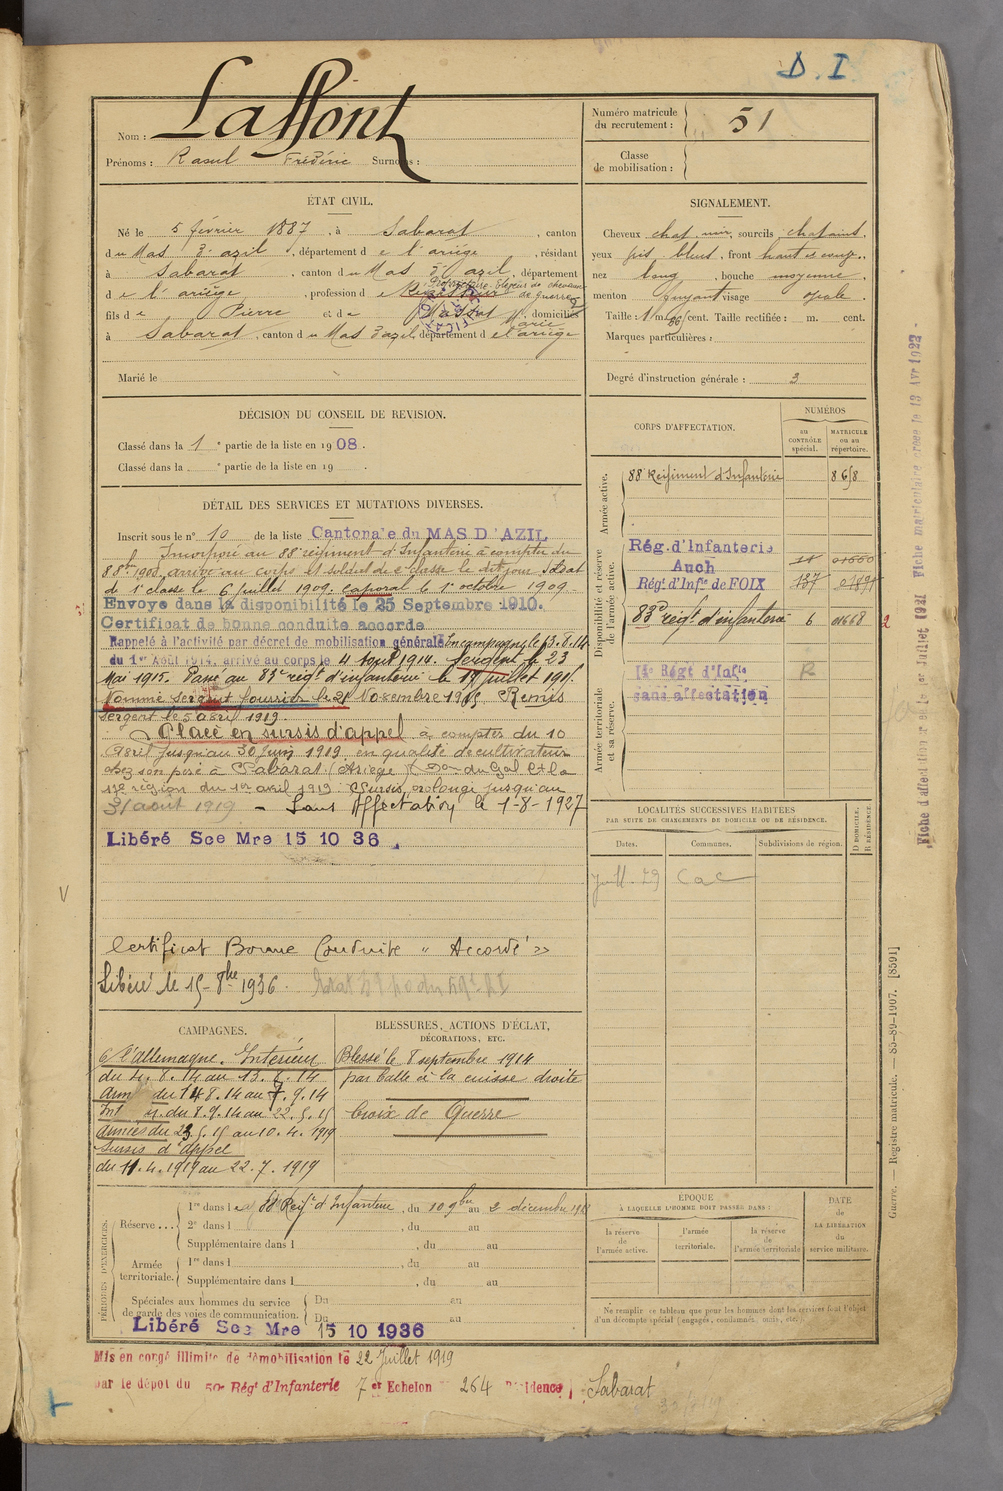 D. I
Nom : Laffont
Prénoms : Raoul Frédéric Surnoms :
Numéro matricule du recrutement : 51
Classe de mobilisation :
ÉTAT CIVIL.
Né le 5 février 1887, à Sabarat, canton
du Mas d'azil, département de l'ariège, résidant
à Sabarat, canton du Mas d'azil, département
Propriétaire. Eleveur de chevaux de guerre
de l'ariège, profession de
fils de Pierre et de Massat Marie, domiciliés
à Sabarat, canton du Mas d'azil, département de l'ariège
Marié le
SIGNALEMENT.
Cheveux chat. noir, sourcils chatains,
yeux gris bleus, front haut
nez long, bouche moyenne,
menton fuyant visage ovale.
Taille : 1 m. 66 cent. Taille rectifiée : m. cent.
Marques particulières :
Degré d'instruction générale : 3
DÉCISION DU CONSEIL DE REVISION.
Classé dans la 1e partie de la liste en 1908.
Classé dans la e partie de la liste en 19 .
DÉTAIL DES SERVICES ET MUTATIONS DIVERSES.
Inscrit sous le n° 10 de la liste Cantonale du MAS D'AZIL
Incorporé au 88e régiment d'Infanterie à compter du
8 8bre 1908, arrivé au corps et soldat de 2e classe le dit jour. Soldat
de 1e classe le 6 juillet 1909. Caporal le 1er octobre 1909.
Envoyé dans la disponibilité le 25 Septembre 1910.
Certificat de bonne conduite accordé
Rappelé à l'activité par décret de mobilisation générale En campagne le 13.8.14
du 1er Août 1914. arrivé au corps le 4 Aout 1914. Sergent le 23
Mai 1915. Passé au 83e régt d'infanterie le 19 juillet 191
Nommé sergent fourrier le 21 Novembre 1915 Remis
sergent le 5 avril 1919.
Placé en sursis d'appel à compter du 10
Avril jusqu'au 30 juin 1919 en qualité de cultivateur
chez son père à Sabarat (Ariège) Don du Gal Ct la
17e région du 1er avril 1919. Sursis prolongé jusqu'au
31 août 1919 - Sans Affectation le 1-8-1927
Libéré Sce Mre 15 10 36
Certificat Bonne Conduite « Accordé »
Libéré le 15-8bre 1936.
CORPS D'AFFECTATION.
NUMÉROS
au CONTRÔLE spécial.
MATRICULE ou au répertoire.
Armée active.
88e Régiment d'Infanterie 8658
Disponibilité et réserve de l'armée active.
Rég. d'Infanterie
Auch
Régt d'Infie de FOIX
83e régt d'infanterie 6 01668
2
Armée territoriale et sa réserve.
Régt d'Infie R
sans affectation
LOCALITÉS SUCCESSIVES HABITÉES
PAR SUITE DE CHANGEMENTS DE DOMICILE OU DE RÉSIDENCE.
Dates.
Communes.
Subdivisions de région.
D DOMICILE.
R RÉSIDENCE.
CAMPAGNES.
C/ l'allemagne. Intérieur
du 4. 8. 14 au 13. 8. 14
Armées du 14 8. 14 au 7. 9. 14
Int. du 8. 9. 14 au 22. 5. 15
Armées du 23. 5. 15 au 10. 4. 1919
Sursis d'appel
du 11. 4. 1919 au 22. 7. 1919
BLESSURES, ACTIONS D'ÉCLAT,
DÉCORATIONS, ETC.
Blessé le 8 septembre 1914
par balle à la cuisse droite
Croix de Guerre
PÉRIODES D'EXERCICES.
Réserve ...
1re dans le 88 Regt d'Infanterie, du 10 9bre au 2 décembre 191
2e dans l , du au
Supplémentaire dans l , du au
Armée territoriale.
1re dans l , du au
Supplémentaire dans l , du au
Spéciales aux hommes du service de garde des voies de communication.
Du au
Du au
Libéré Sce Mre 15 10 1936
ÉPOQUE
À LAQUELLE L'HOMME DOIT PASSER DANS :
la réserve de l'armée active.
l'armée territoriale.
la réserve de l'armée territoriale
DATE DE LA LIBÉRATION du service militaire.
Ne remplir ce tableau que pour les hommes dont les services font l'objet
d'un décompte spécial (engagés, condamnés, omis, etc.)
Mis en congé illimité de démobilisation le 22 Juillet 1919
par le dépôt du 59e Régt d'Infanterie 7 er Echelon 264 Résidence Sabarat
Guerre. — Registre matricule. — 85-89-1907. [8591]